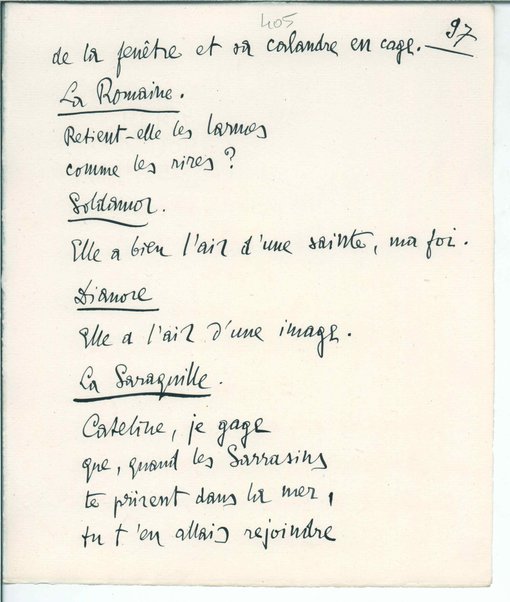 405
97
de la fenêtre et sa calandre en cage.
La Romaine.
Retient-elle les larmes
comme les rires ?
Soldamor.
Elle a bien l'air d'une sainte, ma foi.
Dianore
Elle a l'air d'une image.
La Saraquille.
Cateline, je gage
que, quand les Sarrasins
te prirent dans la mer,
tu t'en allais rejoindre